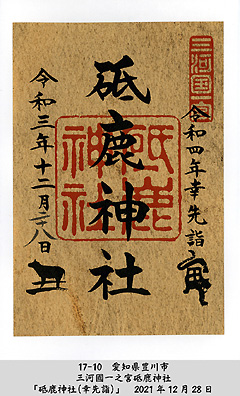 三河国一宮
令和四年幸先詣
寅
砥鹿神社
砥鹿神社
令和三年十二月二八日
17-10 愛知県豊川市
三河國一之宮砥鹿神社
「砥鹿神社(幸先詣)」 2021年12月28日